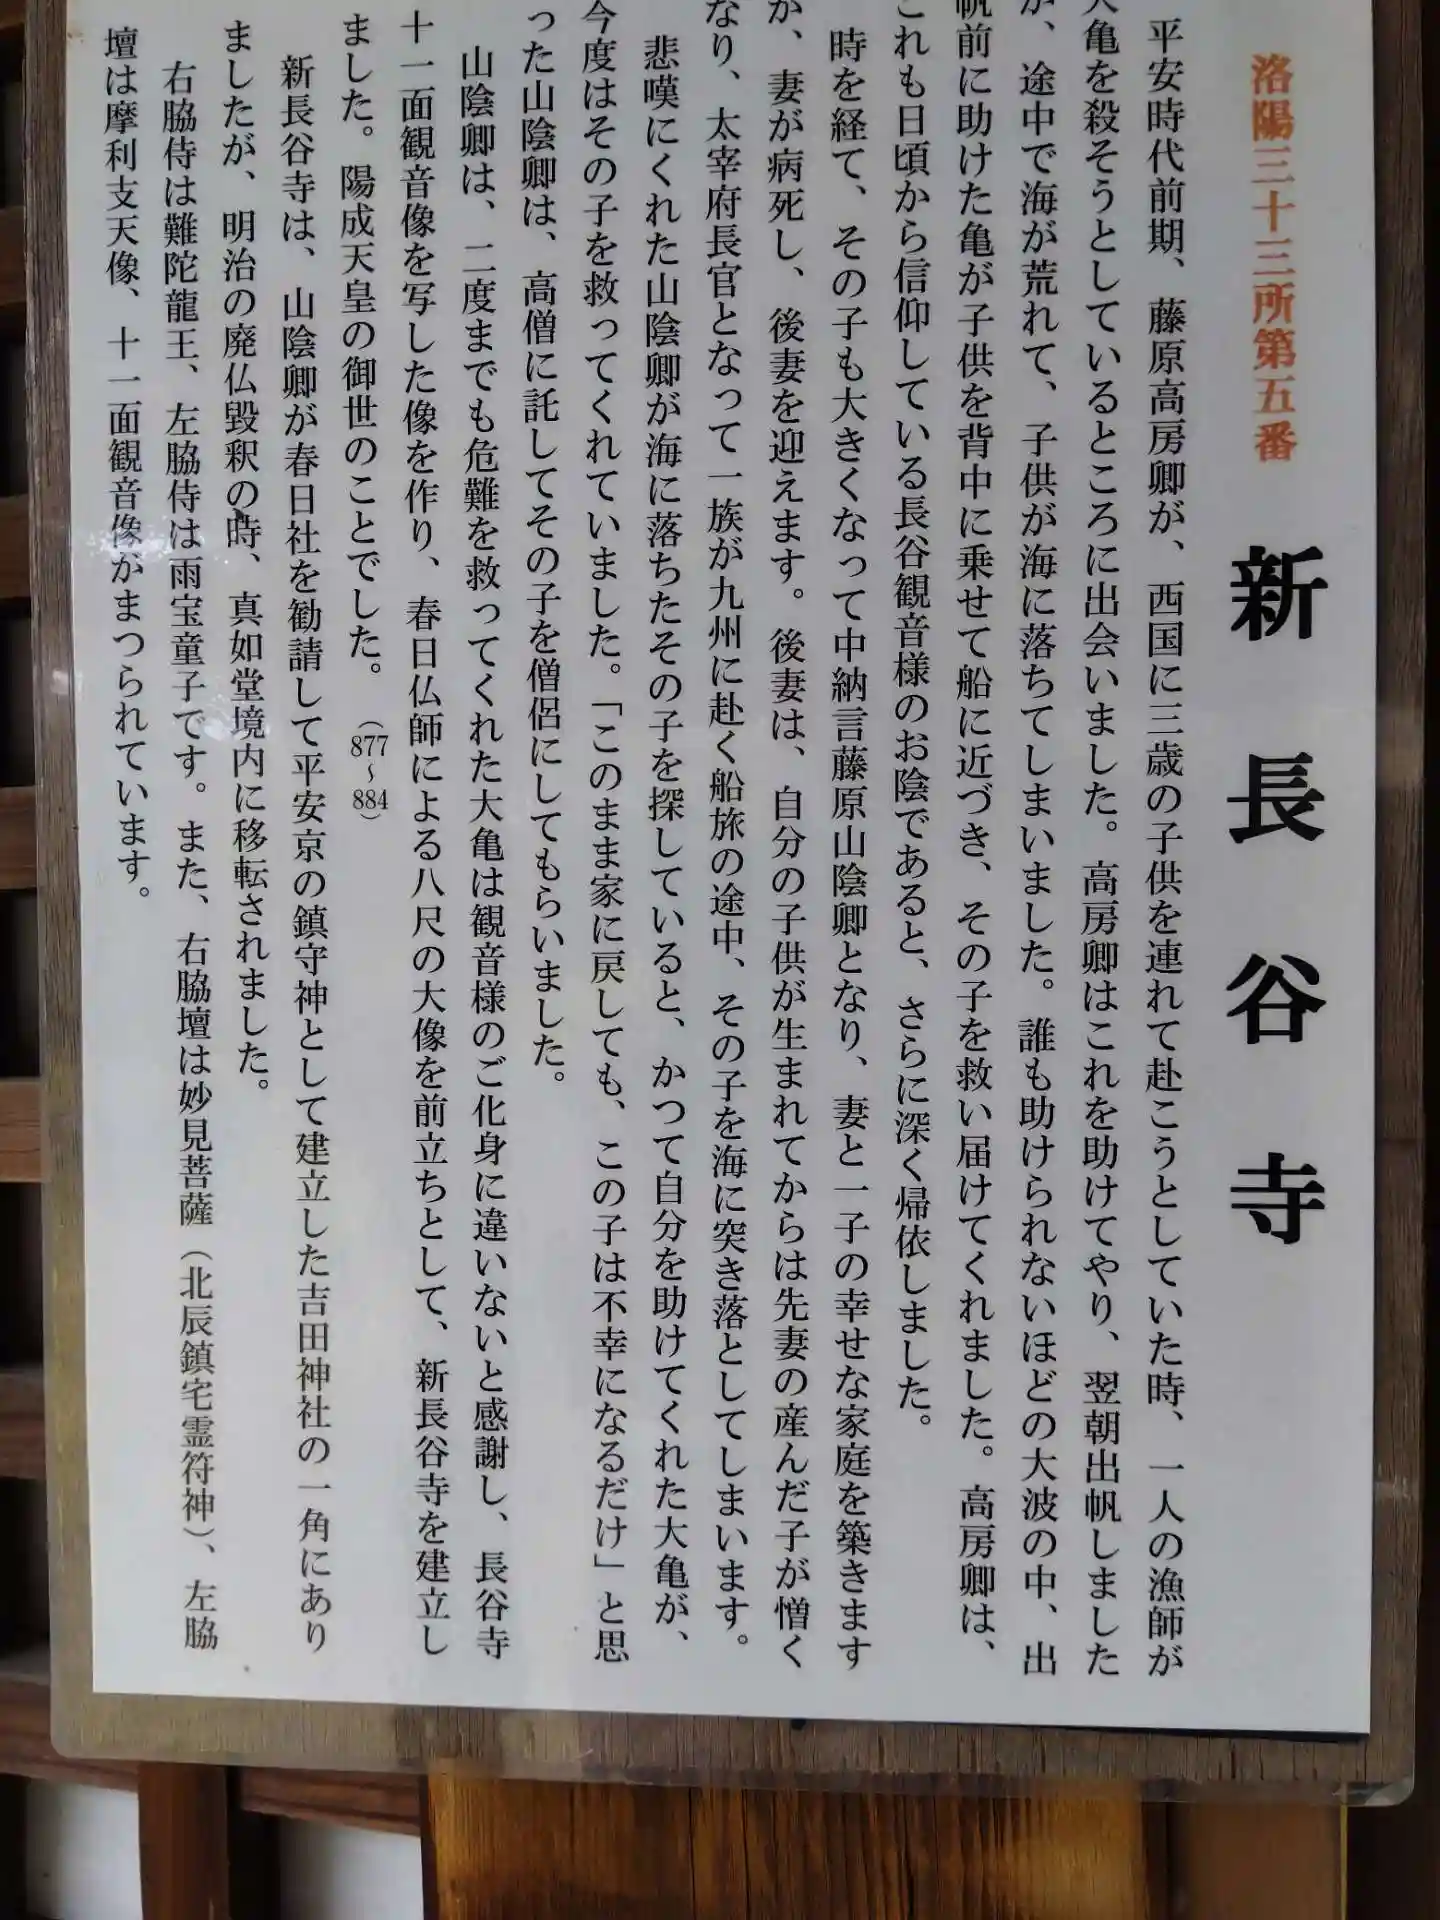 洛陽三十三所第五番
新長谷寺
平安時代前期、藤原高房卿が、西国に三歳の子供を連れて赴こうとしていた時、一人の漁師が
大亀を殺そうとしているところに出会いました。高房卿はこれを助けてやり、翌朝出帆しました
が、途中で海が荒れて、子供が海に落ちてしまいました。誰も助けられないほどの大波の中、出
帆前に助けた亀が子供を背中に乗せて船に近づき、その子を救い届けてくれました。高房卿は、
これも日頃から信仰している長谷観音様のお陰であると、さらに深く帰依しました。
時を経て、その子も大きくなって中納言藤原山陰卿となり、妻と一子の幸せな家庭を築きます
が、妻が病死し、後妻を迎えます。後妻は、自分の子供が生まれてからは先妻の産んだ子が憎く
なり、太宰府長官となって一族が九州に赴く船旅の途中、その子を海に突き落としてしまいます。
悲嘆にくれた山陰卿が海に落ちたその子を探していると、かつて自分を助けてくれた大亀が、
今度はその子を救ってくれていました。「このまま家に戻しても、この子は不幸になるだけ」と思
った山陰卿は、高僧に託してその子を僧侶にしてもらいました。
山陰卿は、二度までも危難を救ってくれた大亀は観音様のご化身に違いないと感謝し、長谷寺
十一面観音像を写した像を作り、春日仏師による八尺の大像を前立ちとして、新長谷寺を建立し
ました。陽成天皇の御世のことでした。（877～884）
新長谷寺は、山陰卿が春日社を勧請して平安京の鎮守神として建立した吉田神社の一角にあり
ましたが、明治の廃仏毀釈の時、真如堂境内に移転されました。
右脇侍は難陀龍王、左脇侍は雨宝童子です。また、右脇壇は妙見菩薩（北辰鎮宅霊符神）、左脇
壇は摩利支天像、十一面観音像がまつられています。